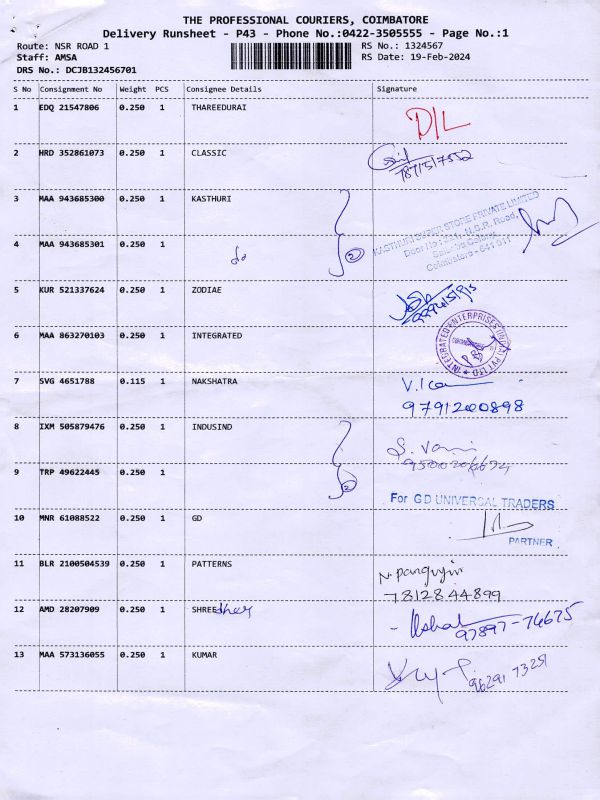 THE PROFESSIONAL COURIERS, COIMBATORE
Delivery Runsheet - P43 - Phone No.:0422-3505555 - Page No.:1
Route: NSR ROAD 1 RS No.: 1324567
Staff: AMSA RS Date: 19-Feb-2024
DRS No.: DCJB132456701
S No Consignment No Weight PCS Consignee Details Signature
1 EDQ 21547806 0.250 1 THAREEDURAI D/L
2 HRD 352861073 0.250 1 CLASSIC
3 MAA 943685300 0.250 1 KASTHURI
KASTHURI SUPER STORE PRIVATE LIMITED
N.S.R. Road,
4 MAA 943685301 0.250 1 do 2
Coimbatore - 641 011
5 KUR 521337624 0.250 1 ZODIAE
6 MAA 863270103 0.250 1 INTEGRATED
INTEGRATED ENTERPRISES PVT LTD
7 SVG 4651788 0.115 1 NAKSHATRA
9791200898
8 IXM 505879476 0.250 1 INDUSIND
9 TRP 49622445 0.250 1 2
For GD UNIVERSAL TRADERS
10 MNR 61088522 0.250 1 GD
PARTNER
11 BLR 2100504539 0.250 1 PATTERNS
7812844899
12 AMD 28207909 0.250 1 SHREE
97897-74675
13 MAA 573136055 0.250 1 KUMAR
96291 73251